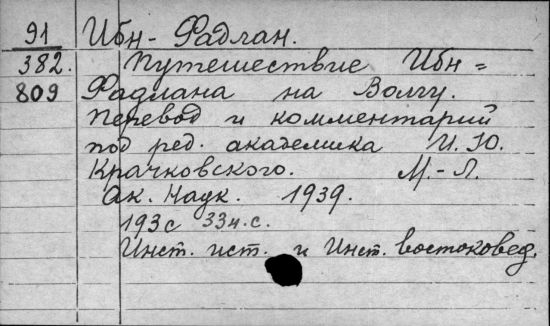 91 Ибн-Фадлан.
382. Путешествие Ибн=
809 Фадлана на Волгу.
Перевод и комментарий
под ред. академика И. Ю.
Крачковского. М.-Л.
Ак. Наук. 1939.
193 с 33н.с.
Инст. ист. и Инст. востоковед.